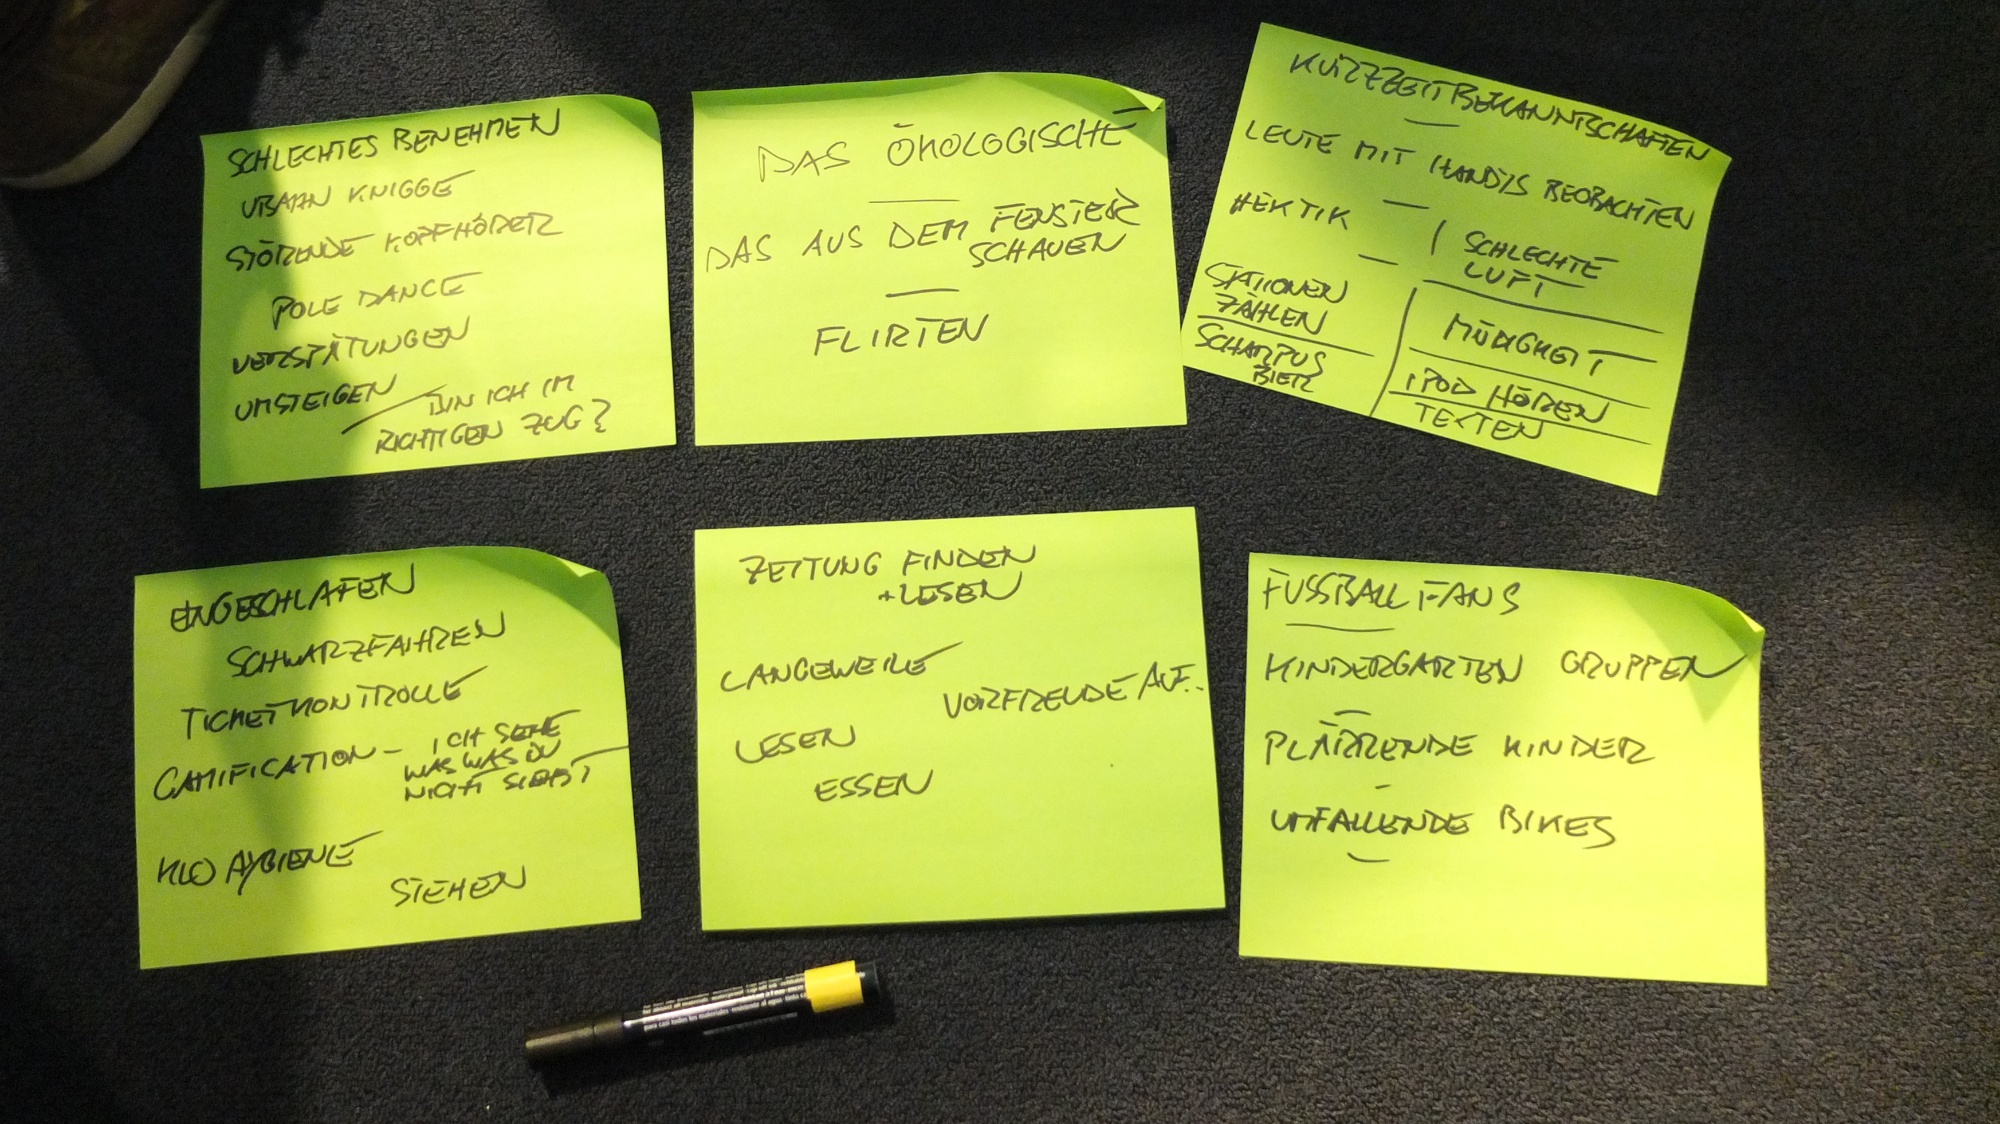 SCHLECHTES BENEHMEN
UBAHN KNIGGE
STÖRENDE KOPFHÖRER
POLE DANCE
VERSPÄTUNGEN
UMSTEIGEN
BIN ICH IM
RICHTIGEN ZUG?
DAS ÖKOLOGISCHE
DAS AUS DEM FENSTER
SCHAUEN
FLIRTEN
KURZZEITBEKANNTSCHAFTEN
LEUTE MIT HANDYS BEOBACHTEN
HEKTIK
SCHLECHTE
LUFT
STATIONEN
ZÄHLEN
BIER
MÜDIGKEIT
IPOD HÖREN
TEXTEN
EINGESCHLAFEN
SCHWARZFAHREN
TICKETKONTROLLE
GAMIFICATION - ICH SEHE
WAS WAS DU
NICHT SIEHST
KLO HYGIENE
STEHEN
ZEITUNG FINDEN
+LESEN
LANGEWEILE
VORFREUDE AUF..
LESEN
ESSEN
FUSSBALL FANS
KINDERGARTEN GRUPPEN
PLÄRRENDE KINDER
UMFALLENDE BIKES